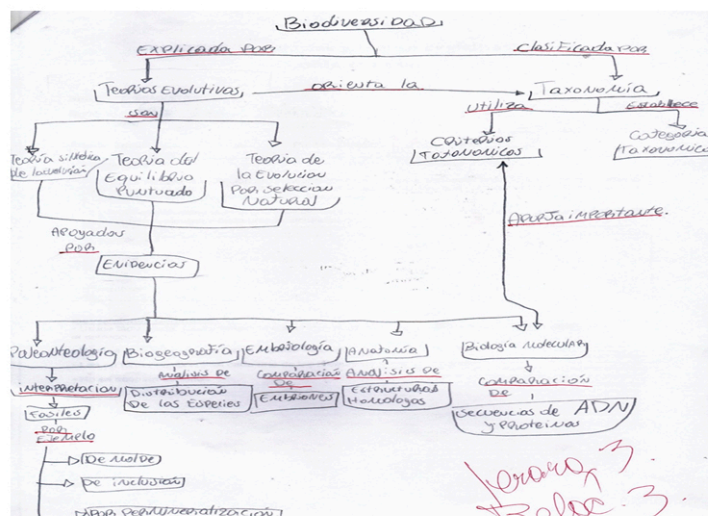 BiodiveRsiDaD
EXPLICADA POR
ClasificadaPOR
TeoRias Evolutivas
ORienta la
Taxonomía
son
Utiliza
Establece
Teoría
Teoria del
Equilibrio
Puntuado
Teoria de
la Evolucion
POR selección
Natural
CRiterios
Taxonomicos
Categoria
Taxonomica
Apoyadas
POR
Evidencias
APORTA impORtante.
Biogeografía
Embriología
Anatomía
Biología moleculAR
interpretacion
Analisis de
Comparación
De
Analisis De
Comparación
De
Fosiles
Distribución
De las Especies
Embriones
Estructuras
Homologas
Secuencias de ADN
y Proteinas
POR
Ejemplo
De molde
De inclusion
POR PERmineralización
3
3.